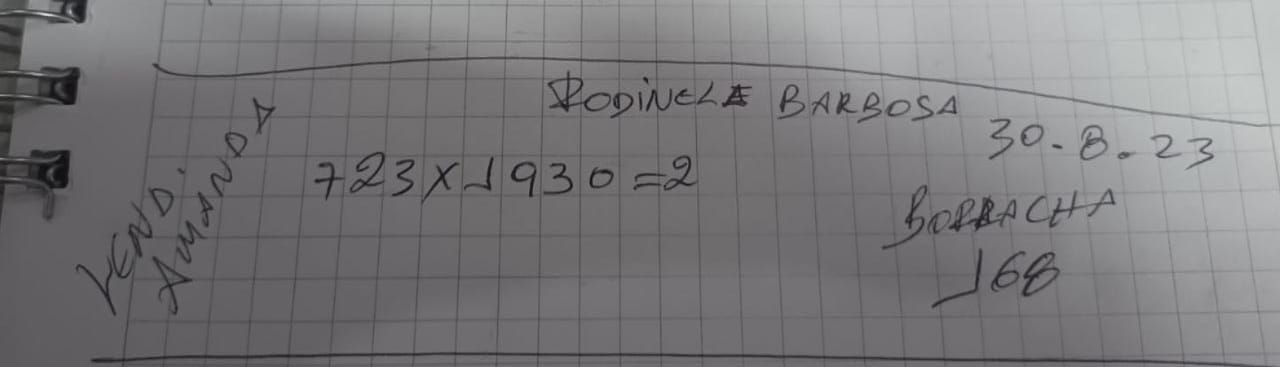 RODINELA BARBOSA
30-8-23
VEND.
AMANDA
723X1930=2
BORRACHA
168